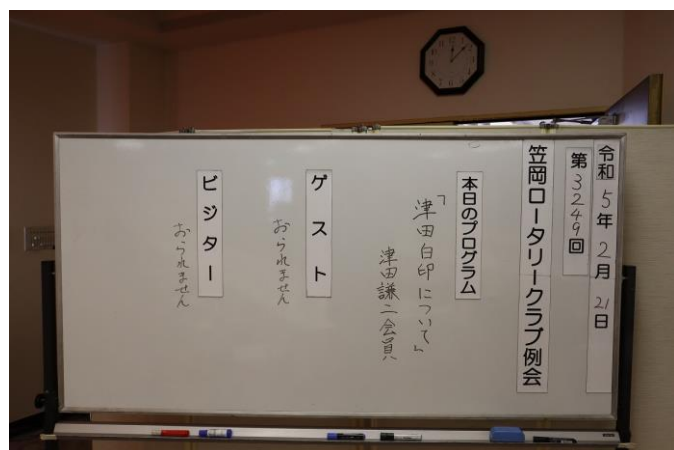 令和5年2月21日
第3249回
笠岡ロータリークラブ例会
本日のプログラム
「津田白印について」
津田謙二会員
ゲスト
おられません
ビジター
おられません